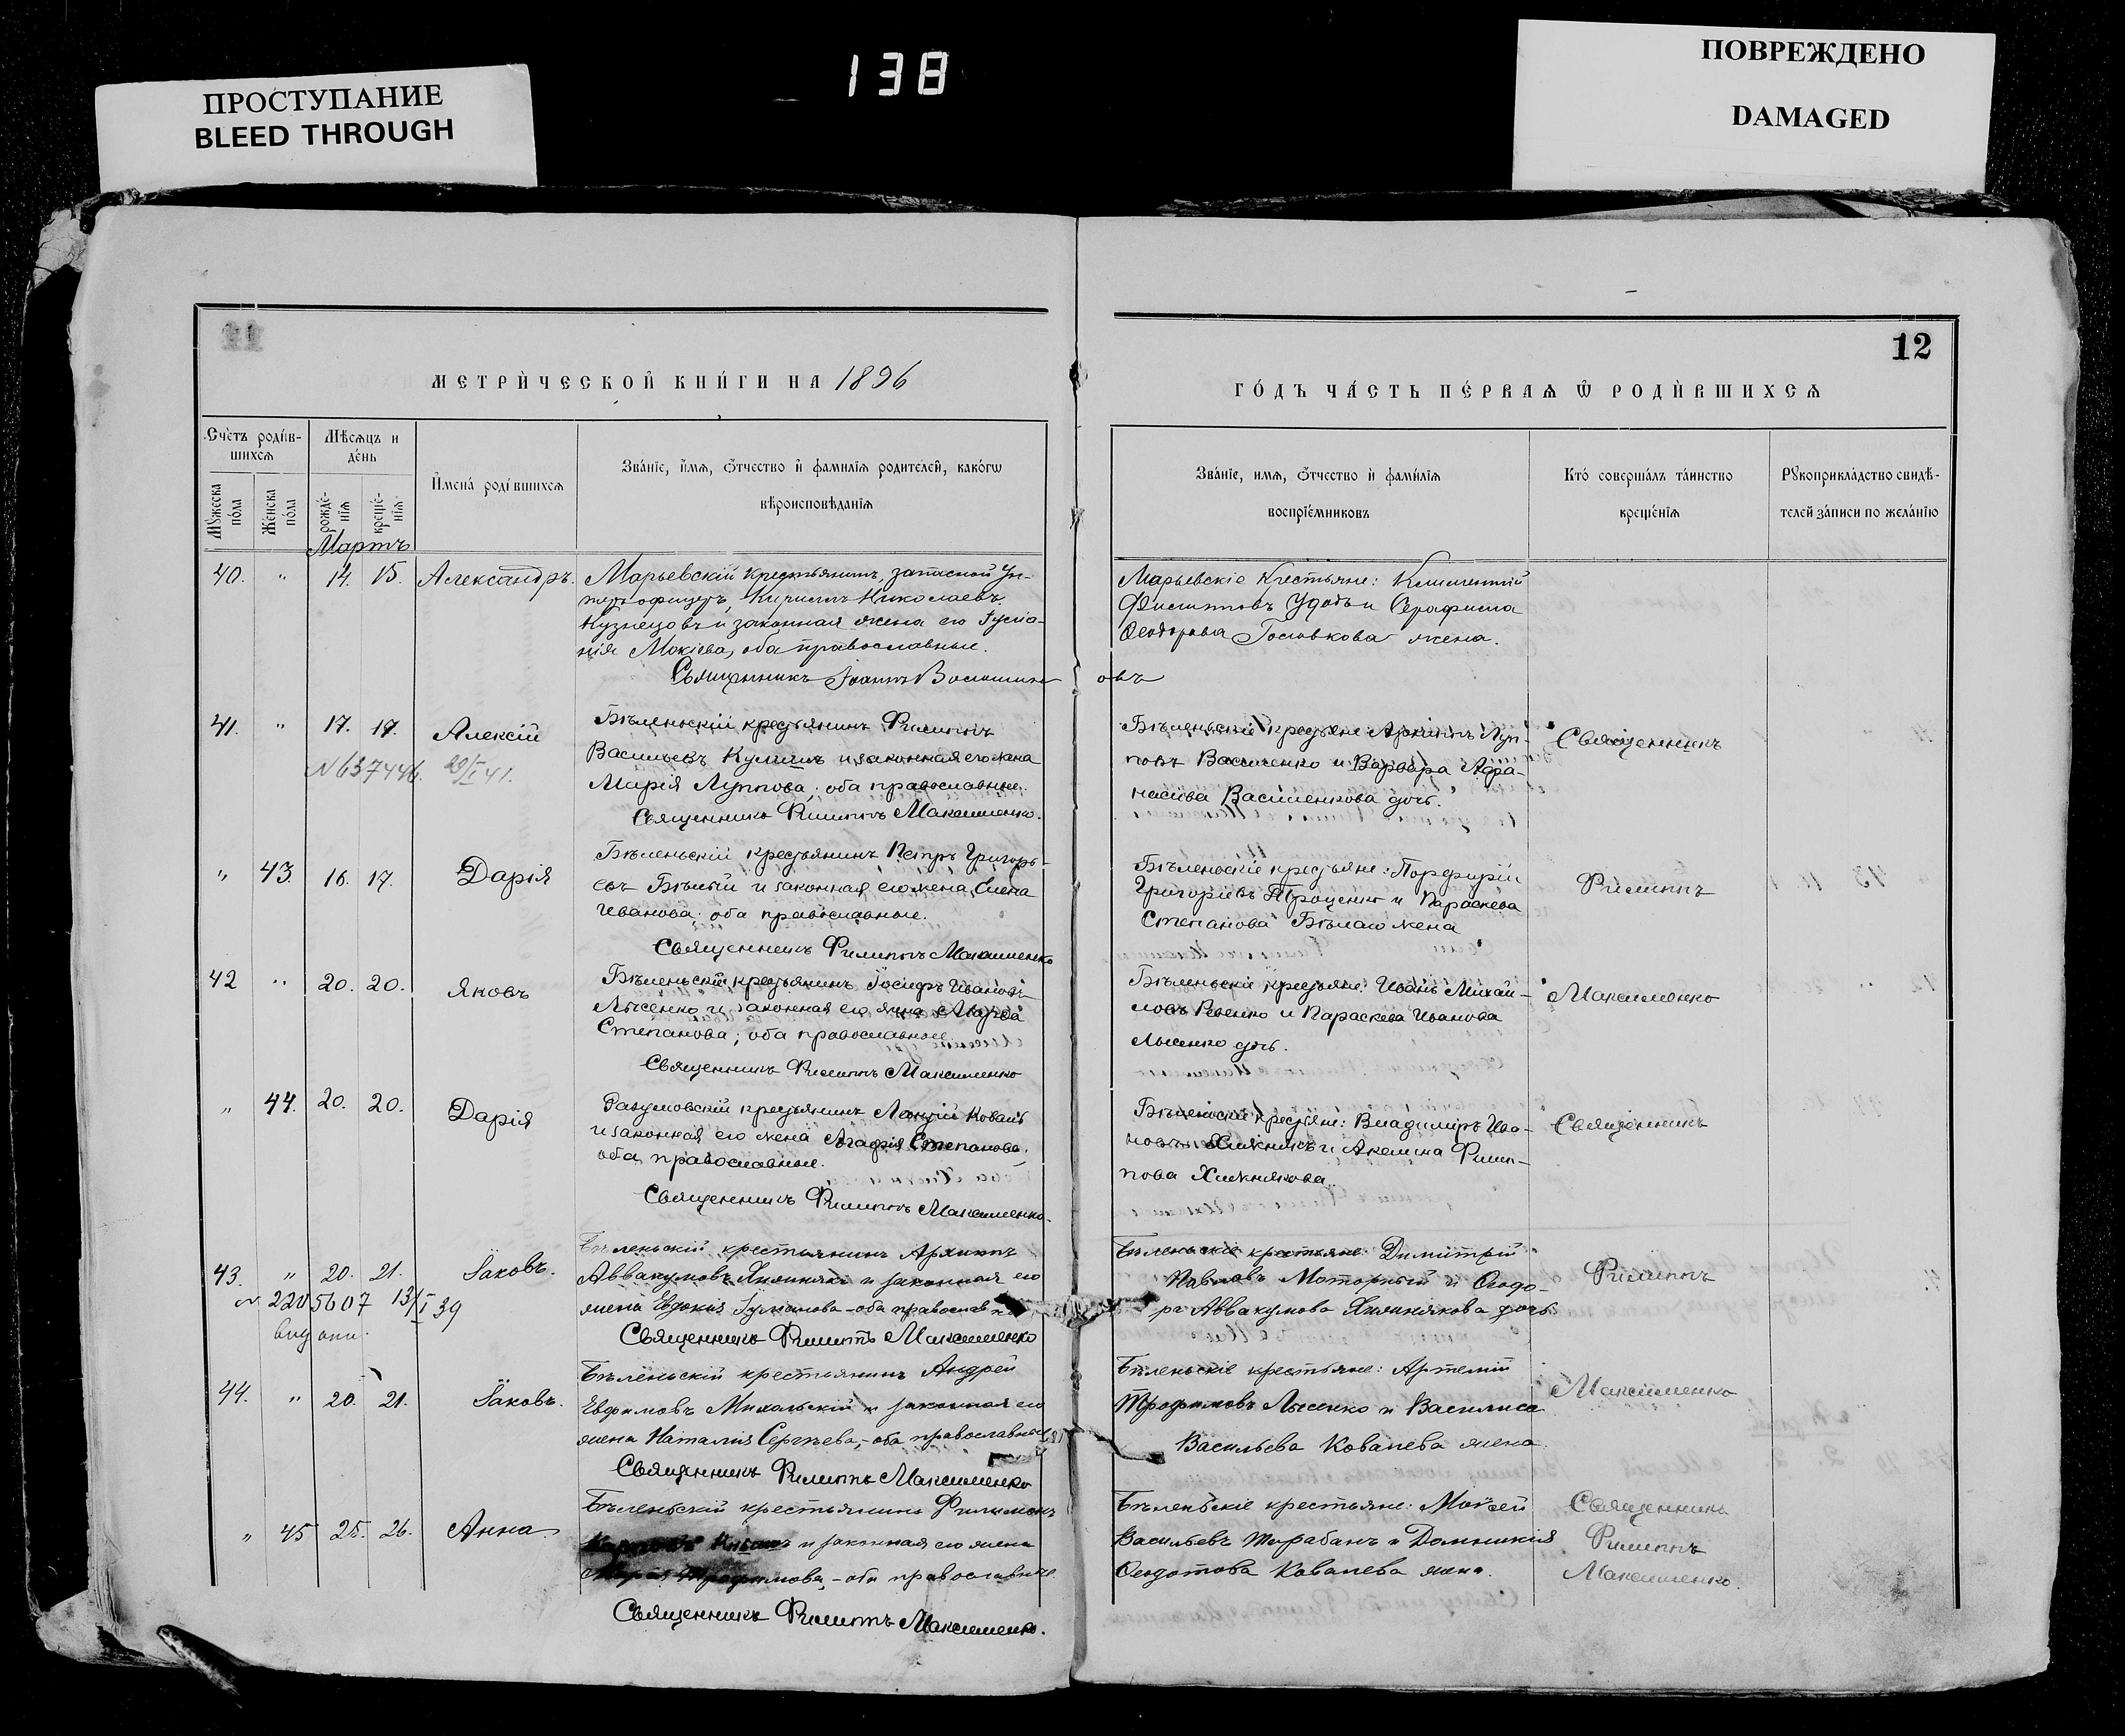 ПРОСТУПАНИЕ
BLEED THROUGH
138
ПОВРЕЖДЕНО
DAMAGED
12
МЕТРИ́ЧЕСКОЙ КНИ́ГИ НА 1896
ГО́ДЪ ЧА́СТЬ ПЕ́РВАѦ Ѿ РОДИ́ВШИХСѦ
Сче́тъ роди́в-
шихсѧ
Мѣ́сѧцъ и
де́нь
Мꙋ́жеска
по́ла
Же́нска
по́ла
рожде́-
нїѧ
креще́-
нїѧ
И҆мена̀ роди́вшихсѧ
Зва́нїе, и҆́мѧ, ѻ҆́тчество и҆ фами́лїѧ роди́телей, како́гѡ
вѣроисповѣ́данїѧ
Зва́нїе, имѧ, ѻ҆́тчество и҆ фами́лїѧ
воспрїе́мниковъ
Кто̀ соверша́лъ та́инство
креще́нїѧ
Рꙋкоприкла́дство свидѣ́-
телей за́писи по жела́нїю
Мартъ
40. " 14. 15. Александръ.
Марьевскій крестьянинъ, запасной Ун-
теръофицеръ, Кириллъ Николаевъ
Кузнецовъ и законная жена его Іуліа-
нія Мокіева, оба православные.
Священникъ Іоаннъ
Марьевскіе крестьяне: Климентій
Филипповъ Удодъ и Серафима
Ѳеодорова Головкова жена.
41. " 17. 17. Алексій
N 637446. 29/I 41.
Бѣленьскій крестьянинъ Филиппъ
Васильевъ Кулишъ и законная его жена
Марія Луппова; оба православные.
Священникъ Филиппъ Максименко.
Бѣленьскіе крестьяне: Архиппъ Луп-
повъ Василенко и Варвара Афа-
насіева Василенкова дочь.
Священникъ
" 43. 16. 17. Дарія
Бѣленьскій крестьянинъ Петръ Григорь-
евъ Бѣлый и законная его жена Елена
Иванова; оба православные.
Священникъ Филиппъ Максименко
Бѣленьскіе крестьяне: Порфирій
Григоріевъ Проценко и Параскева
Степанова Бѣлаго жена
Филиппъ
42 " 20. 20. Яковъ
Бѣленьскій крестьянинъ Іосифъ Ивановъ
Лысенко и законная его жена Марѳа
Степанова; оба православные
Священникъ Филиппъ Максименко
Бѣленьскіе крестьяне: Иванъ Михаи-
ловъ Ревенко и Параскева Иванова
Лысенко дочь.
Максименко
" 44. 20. 20. Дарія
Разумовскій крестьянинъ Лонгій Коваль
и законная его жена Агафія Степанова;
оба православные.
Священникъ Филиппъ Максименко.
Бѣленьскіе крестьяне: Владиміръ Ива-
новъ и Акелина Филип-
пова
Священникъ
43. " 20. 21. Іаковъ.
N 2205607 13/I 39
Бѣленьскій крестьянинъ Архиппъ
Аввакумовъ и законная его
жена Евдокія оба православные
Священникъ Филиппъ Максименко
Бѣленьскіе крестьяне: Димитрій
Павловъ Моторный и Ѳеодо-
ра Аввакумова дочь
Филиппъ
44. " 20. 21. Іаковъ.
Бѣленьскій крестьянинъ Андрей
Евфимовъ Михальскій и законная его
жена Наталія Сергѣева, - оба православные
Священникъ Филиппъ Максименко
Бѣленьскіе крестьяне: Артемій
Трофимовъ Лысенко и Василиса
Васильева Ковалева жена.
Максименко
" 45 25. 26. Анна.
Бѣленьскій крестьянинъ Филимонъ
и законная его жена
Марія Трофимова, - оба православные.
Священникъ Филиппъ Максименко.
Бѣленьскіе крестьяне: Моѵсей
Васильевъ Тарабанъ и Домникія
Ѳеодотова Ковалева жена.
Священникъ
Филиппъ
Максименко.